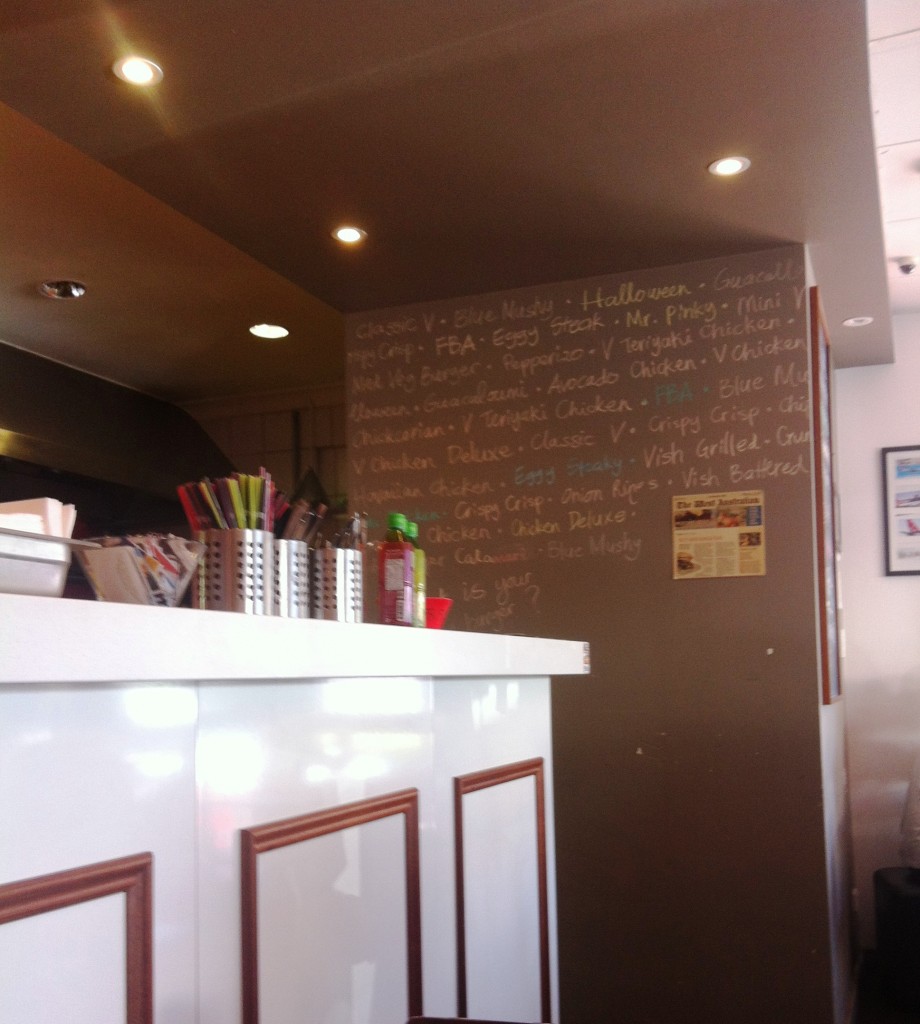 Classic V · Blue Mushy · Halloween · Guacall
spy Crisp · FBA · Eggy Steak · Mr. Pinky · Mini V
Veg Burger · Pepperizo · V Teriyaki Chicken ·
lloween · Guacalzumi · Avocado Chicken · V Chicken
Chickanian · V Teriyaki Chicken · FBA · Blue Mu
V Chicken Deluxe · Classic V · Crispy Crisp · Chi
Hawaiian Chicken · Eggy Steaky · Vish Grilled · Crun
Crispy Crisp · Onion Rings · Vish Battered
Chicken · Chicken Deluxe ·
Calamari · Blue Mushy
is your
burger?
The West Australian